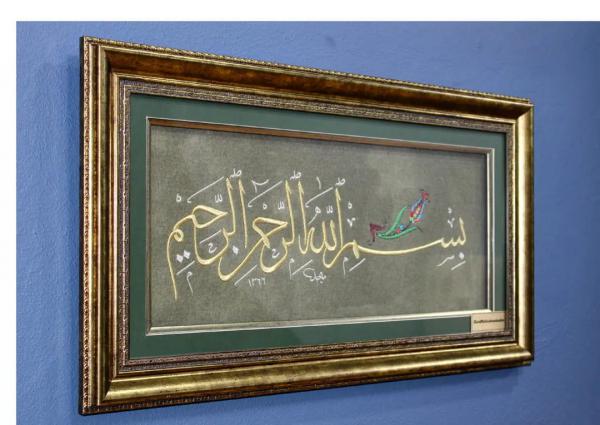 بِسْمِ اللّٰهِ الرَّحْمٰنِ الرَّحِيمِ
١٣٦٦